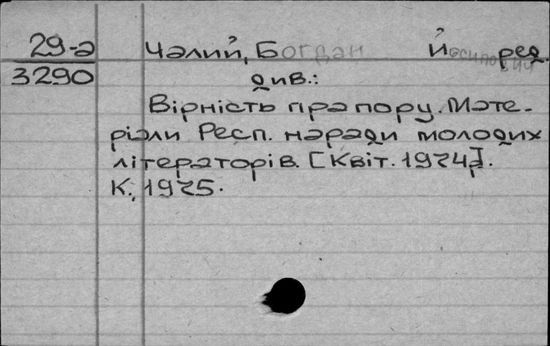 29-а Чалий, Богдан Йосипович ред.
3290 див.:
Вірність прапору. Мате-
ріали Респ. наради молодих
літераторів. [Квіт. 1974 р].
К., 1975.